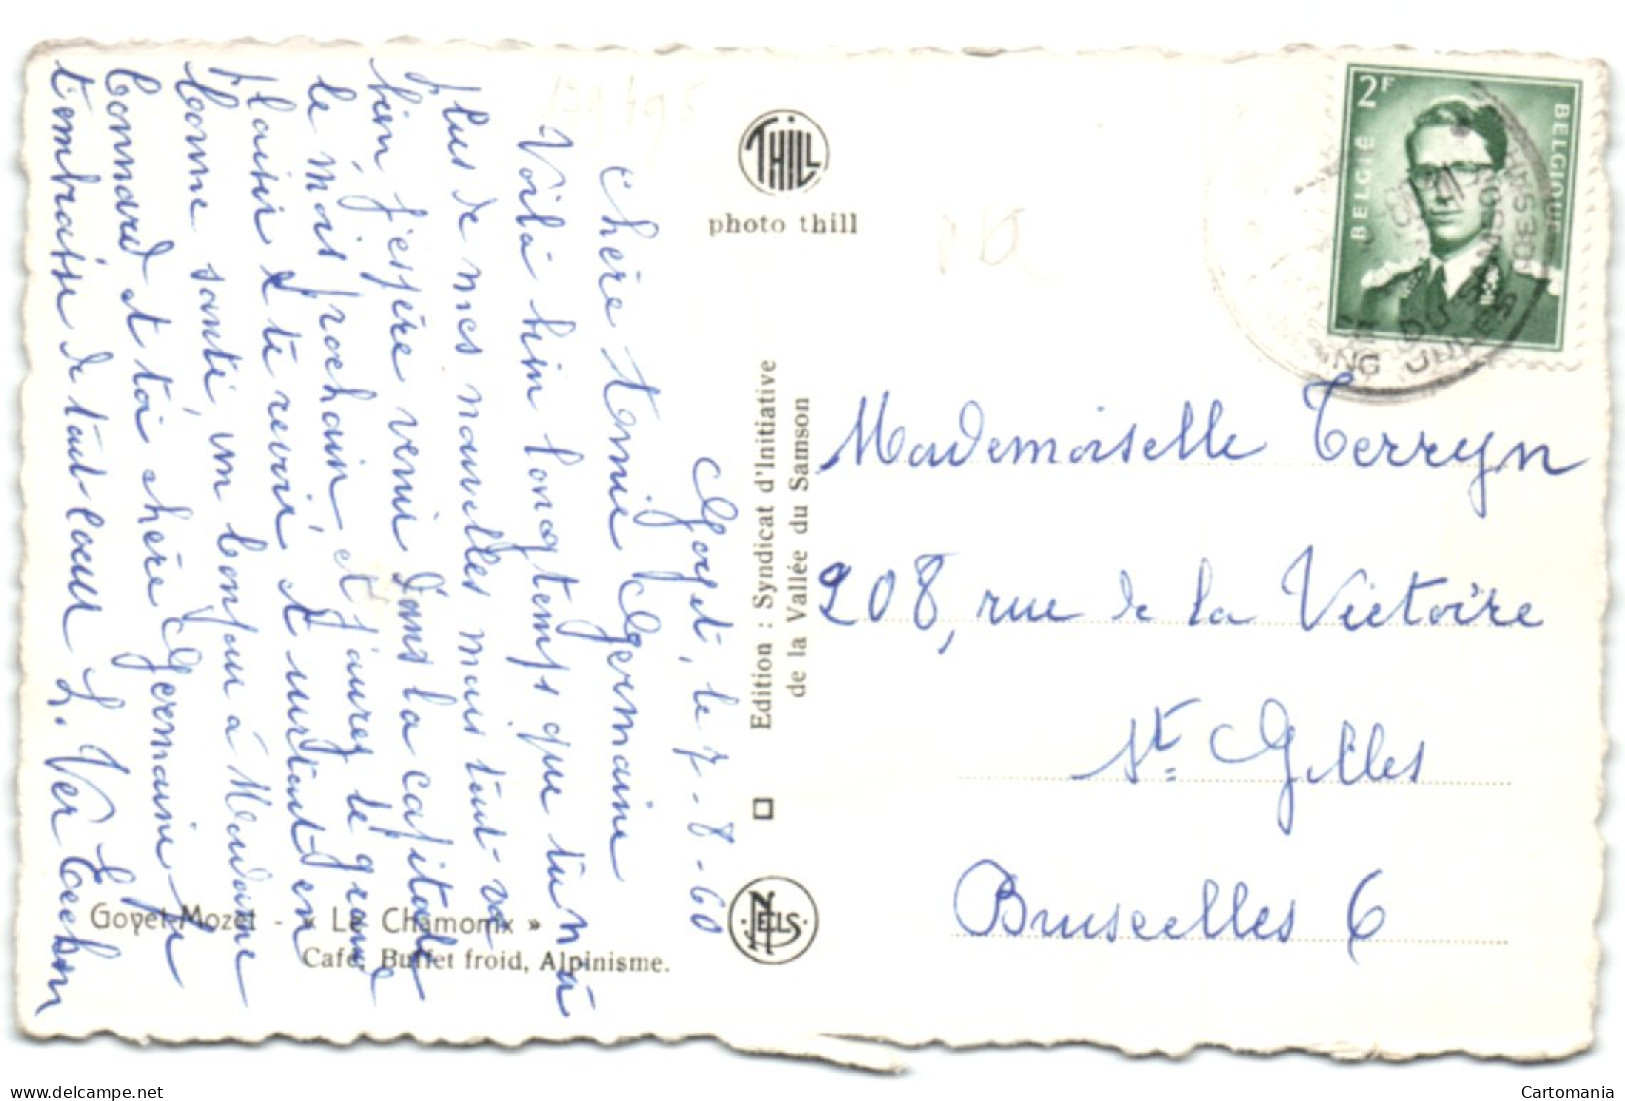 Goyet, le 7-8-60
Chère Amie Germaine
Voilà bien longtemps que tu n'a
plus de mes nouvelles mais tout va
bien, j'espère venir dans la capitale
le mois prochain, et j'aurez le grand
plaisir de te revoir, et surtout en
bonne santé, un bonjour à Madame
Connard et toi chère Germaine je
t'embrasse de tout cœur
THILL
photo thill
Edition : Syndicat d'Initiative
de la Vallée du Samson
NELS
Goyet-Mozet - « Le Chamonix »
Café, Buffet froid, Alpinisme.
2F
BELGIË
BELGIQUE
Mademoiselle Terryn
208, rue de la Victoire
St. Gilles
Bruxelles 6
delcampe.net
Cartomania